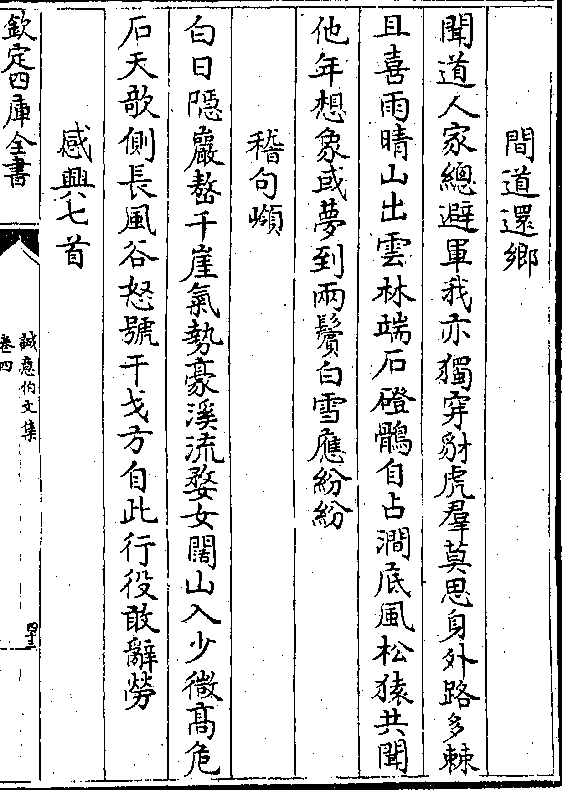 間道還鄉
聞道人家總避軍我亦獨穿豺虎羣莫思身外路多棘
且喜雨晴山出雲林端石磴鶻自占澗底風松猿共聞
他年想象或夢到兩鬢白雪應紛紛
稽句嶺
白日隱巖嶅千崖氣勢豪溪流婺女闊山入少微髙危
石天欹側長風谷怒號干戈方自此行役敢辭勞
感興七首
欽定四庫全書
誠意伯文集
卷四